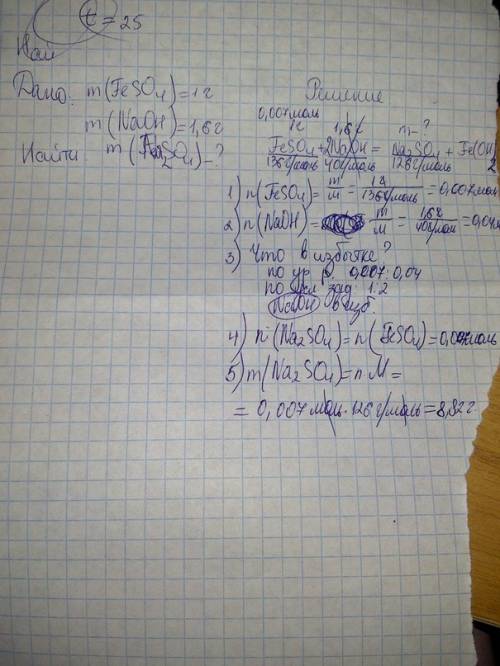 t = 25
Най
Дано: m(FeSO4)=1г
Решение
m(NaOH)=1,6г
Найти m(Na2SO4)-?
0,007моль
1г 1,6г m-?
FeSO4+2NaOH = Na2SO4 + Fe(OH)2
136г/моль 40г/моль 126г/моль
1) n(FeSO4)= m/M = 1г/136г/моль = 0,007моль
2) n(NaOH)= m/M = 1,6г/40г/моль =0,04м
3) Что в избытке?
по ур. р. 0,007:0,04
по усл. зад. 1:2
NaOH в изб.
4) n(Na2SO4)=n(FeSO4)=0,007моль
5) m(Na2SO4)=n·M=
= 0,007моль·126г/моль=8,82г.